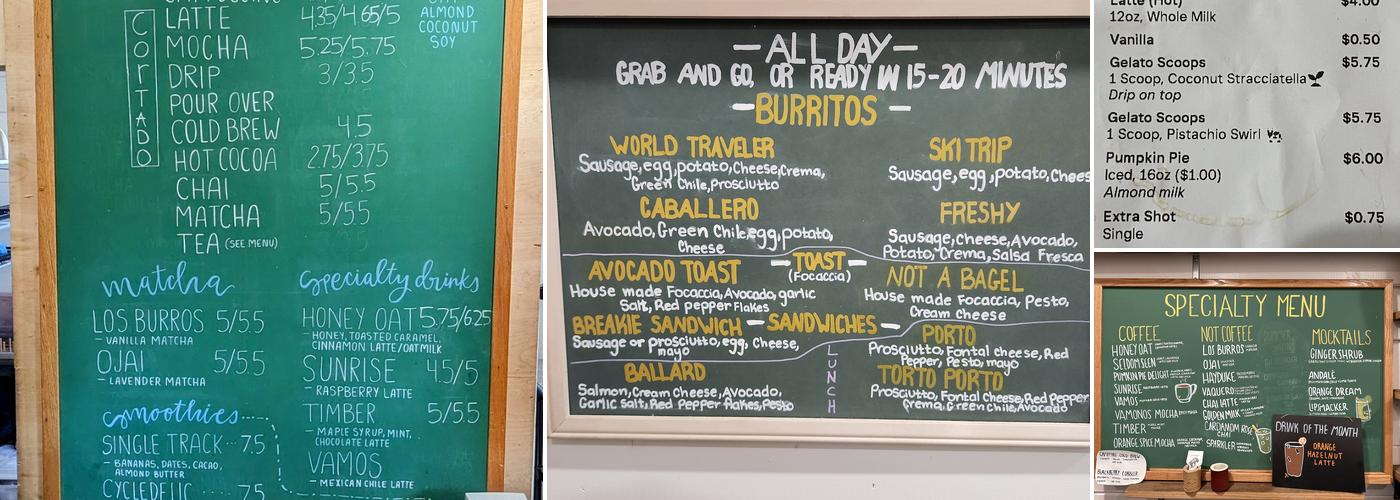 LATTE 4.35/4.65/5
MOCHA 5.25/5.75
DRIP 3/3.5
POUR OVER
COLD BREW 4.5
HOT COCOA 2.75/3.75
CHAI 5/5.5
MATCHA 5/5.5
TEA (SEE MENU)
CORTADO
ALMOND
COCONUT
SOY
matcha
LOS BURROS 5/5.5
- VANILLA MATCHA
OJAI 5/5.5
- LAVENDER MATCHA
smoothies
SINGLE TRACK 7.5
- BANANAS, DATES, CACAO,
ALMOND BUTTER
CYCLEDELIC 7.5
specialty drinks
HONEY OAT 5.75/6.25
- HONEY, TOASTED CARAMEL,
CINNAMON LATTE/OATMILK
SUNRISE 4.5/5
- RASPBERRY LATTE
TIMBER 5/5.5
- MAPLE SYRUP, MINT,
CHOCOLATE LATTE
VAMOS
- MEXICAN CHILE LATTE
- ALL DAY -
GRAB AND GO, OR READY IN 15-20 MINUTES
- BURRITOS -
WORLD TRAVELER
Sausage, egg, potato, Cheese, Crema,
Green Chile, Prosciutto
SKI TRIP
Sausage, egg, potato, Chees
CABALLERO
Avocado, Green Chile, egg, potato,
Cheese
FRESHY
Sausage, Cheese, Avocado,
Potato, Crema, Salsa Fresca
- TOAST -
(Focaccia)
AVOCADO TOAST
House made Focaccia, Avocado, garlic
Salt, Red pepper Flakes
NOT A BAGEL
House made Focaccia, Pesto,
Cream Cheese
- SANDWICHES -
BREAKIE SANDWICH
Sausage or prosciutto, egg, Cheese,
mayo
LUNCH
PORTO
Prosciutto, Fontal Cheese, Red
Pepper, Pesto, mayo
BALLARD
Salmon, Cream Cheese, Avocado,
Garlic Salt, Red Pepper flakes, Pesto
TORTO PORTO
Prosciutto, Fontal Cheese, Red Pepper
Crema, Green Chile, Avocado
Latte (Hot) $4.00
12oz, Whole Milk
Vanilla $0.50
Gelato Scoops $5.75
1 Scoop, Coconut Stracciatella
Drip on top
Gelato Scoops $5.75
1 Scoop, Pistachio Swirl
Pumpkin Pie $6.00
Iced, 16oz ($1.00)
Almond milk
Extra Shot $0.75
Single
SPECIALTY MENU
COFFEE
HONEY OAT
SELDOM SEEN
PUMPKIN PIE DELIGHT
SUNRISE
VAMOS
VAMONOS MOCHA
TIMBER
ORANGE SPICE MOCHA
NOT COFFEE
LOS BURROS
OJAI
HAYDUKE
VANCOUVER
CHAI LATTE
GOLDEN MILK
CARDAMOM ROSE
CHAI
SPARKLER
MOCKTAILS
GINGER SHRUB
ANDALÉ
ORANGE DREAM
LIPSMACKER
DRINK OF THE MONTH
ORANGE
HAZELNUT
LATTE
BLACKBERRY COBBLER